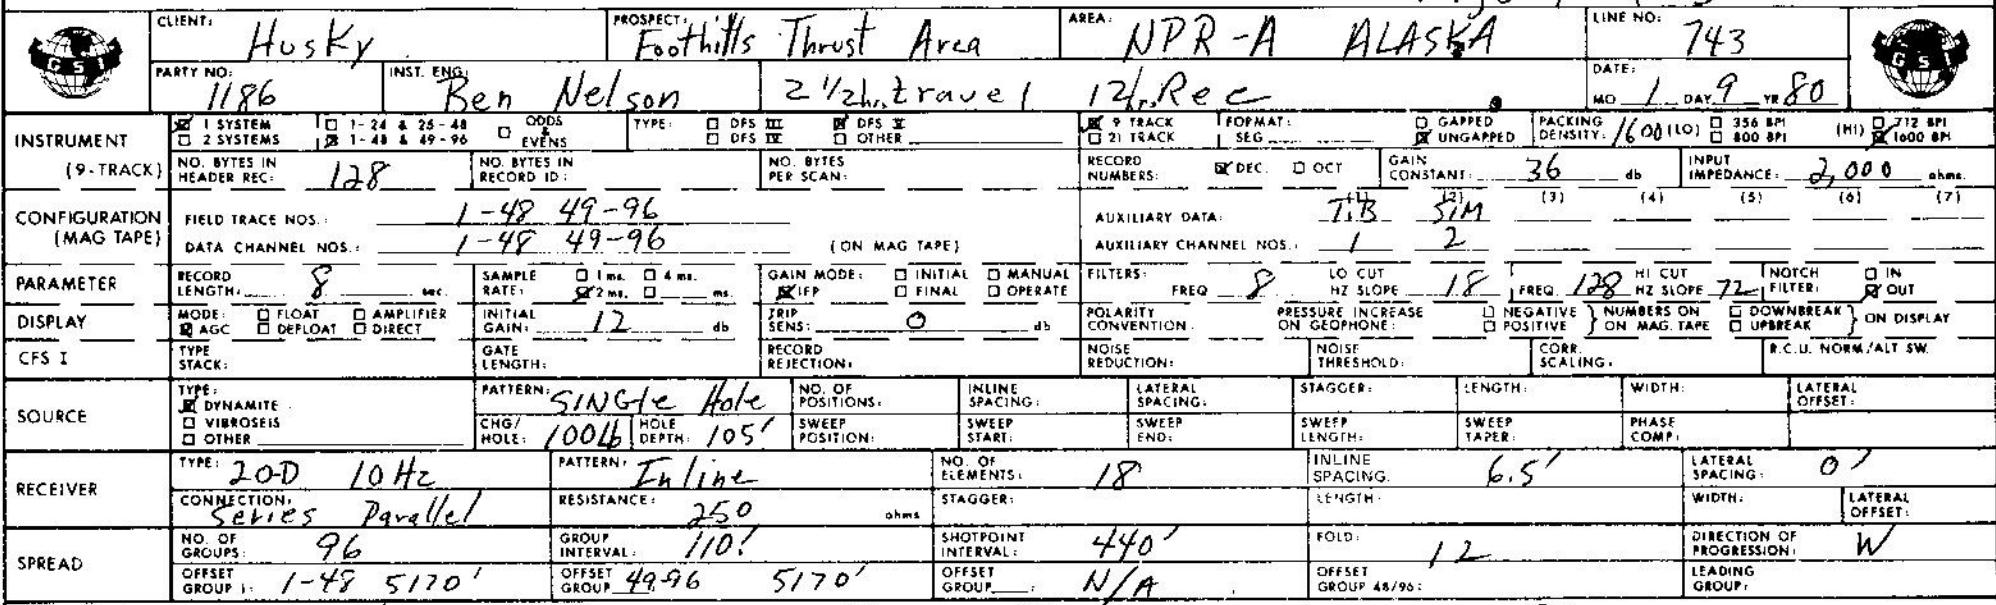 CLIENT: Husky PROSPECT: Foothills Thrust Area AREA: NPR-A ALASKA LINE NO: 743
GSI
PARTY NO: 1186 INST. ENG: Ben Nelson 2 1/2 hr. travel 12 hr. Rec DATE: MO 1 DAY 9 YR 80
GSI
INSTRUMENT (9-TRACK)
1 SYSTEM 1-24 & 25-48 ODDS & EVENS TYPE: DFS III DFS V 9 TRACK FORMAT: GAPPED PACKING DENSITY: 1600 (LO) 356 BPI (HI) 712 BPI
2 SYSTEMS 1-48 & 49-96 DFS IV OTHER 21 TRACK SEG UNGAPPED 800 BPI 1600 BPI
NO. BYTES IN HEADER REC: 128 NO. BYTES IN RECORD ID: NO. BYTES PER SCAN: RECORD NUMBERS: DEC. OCT GAIN CONSTANT: 36 db INPUT IMPEDANCE: 2,000 ohms.
CONFIGURATION (MAG TAPE)
FIELD TRACE NOS.: 1-48 49-96 AUXILIARY DATA: (1) T.B (2) SIM (3) (4) (5) (6) (7)
DATA CHANNEL NOS.: 1-48 49-96 (ON MAG TAPE) AUXILIARY CHANNEL NOS.: 1 2
PARAMETER RECORD LENGTH: 8 sec. SAMPLE RATE: 1 ms. 4 ms. 2 ms. ms. GAIN MODE: INITIAL MANUAL IFP FINAL OPERATE FILTERS: FREQ 8 LO CUT HZ SLOPE 18 FREQ 128 HI CUT HZ SLOPE 72 NOTCH FILTER: IN OUT
DISPLAY MODE: FLOAT AMPLIFIER AGC DEFLOAT DIRECT INITIAL GAIN: 12 db TRIP SENS: 0 db POLARITY CONVENTION: PRESSURE INCREASE ON GEOPHONE: NEGATIVE POSITIVE } NUMBERS ON MAG. TAPE DOWNBREAK UPBREAK } ON DISPLAY
CFS I TYPE STACK: GATE LENGTH: RECORD REJECTION: NOISE REDUCTION: NOISE THRESHOLD: CORR. SCALING: R.C.U. NORM/ALT SW.
SOURCE TYPE: DYNAMITE VIBROSEIS OTHER
PATTERN: SINGle Hole NO. OF POSITIONS: INLINE SPACING: LATERAL SPACING: STAGGER: LENGTH: WIDTH: LATERAL OFFSET:
CHG/ HOLE: 100 lb HOLE DEPTH: 105' SWEEP POSITION: SWEEP START: SWEEP END: SWEEP LENGTH: SWEEP TAPER: PHASE COMP:
RECEIVER TYPE: 20-D 10 Hz PATTERN: Inline NO. OF ELEMENTS: 18 INLINE SPACING. 6.5' LATERAL SPACING: 0'
CONNECTION: Series Parallel RESISTANCE: 250 ohms STAGGER: LENGTH: WIDTH: LATERAL OFFSET:
SPREAD NO. OF GROUPS: 96 GROUP INTERVAL: 110' SHOTPOINT INTERVAL: 440' FOLD: 12 DIRECTION OF PROGRESSION: W
OFFSET GROUP 1: 1-48 5170' OFFSET GROUP 49-96 5170' OFFSET GROUP : N/A OFFSET GROUP 48/96: LEADING GROUP: